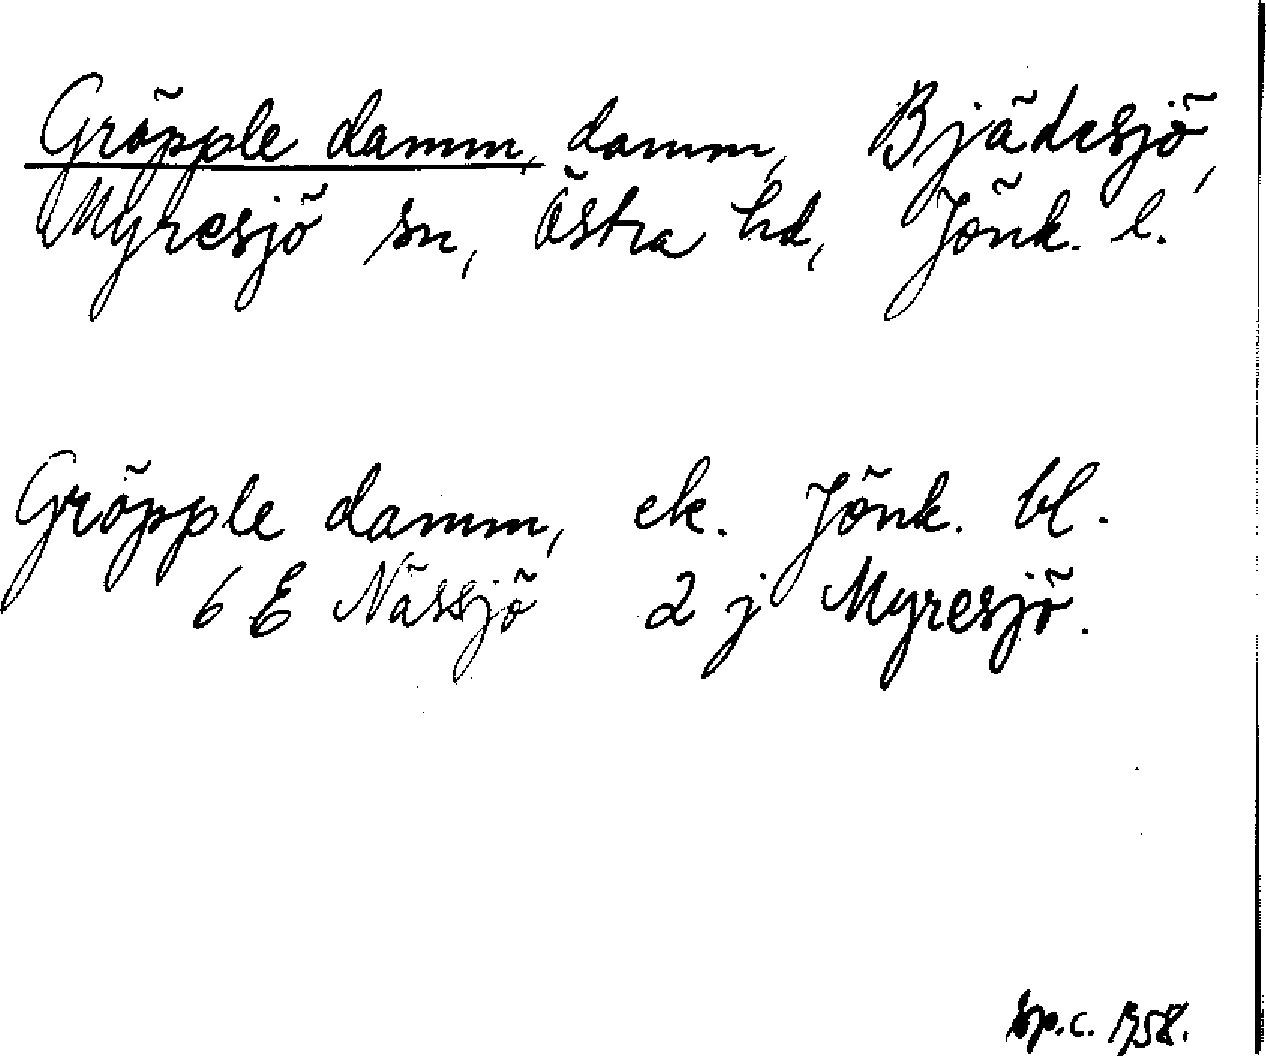 Gröpple damm, damm, Bjädesjö,
Myresjö sn, Östra hd, Jönk. l.
Gröpple damm, ek. Jönk. bl.
6 E Nässjö 2 j Myresjö.
sp.c. 1958.